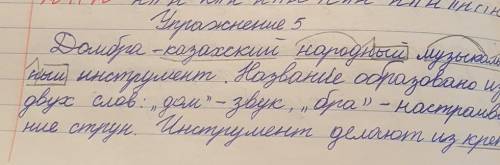 Упражнение 5
Домбра - казахский народный музыкаль
ный инструмент. Название образовано из
двух слов: „дом" - звук, „бра" - настраива
ние струн. Инструмент делают из креп